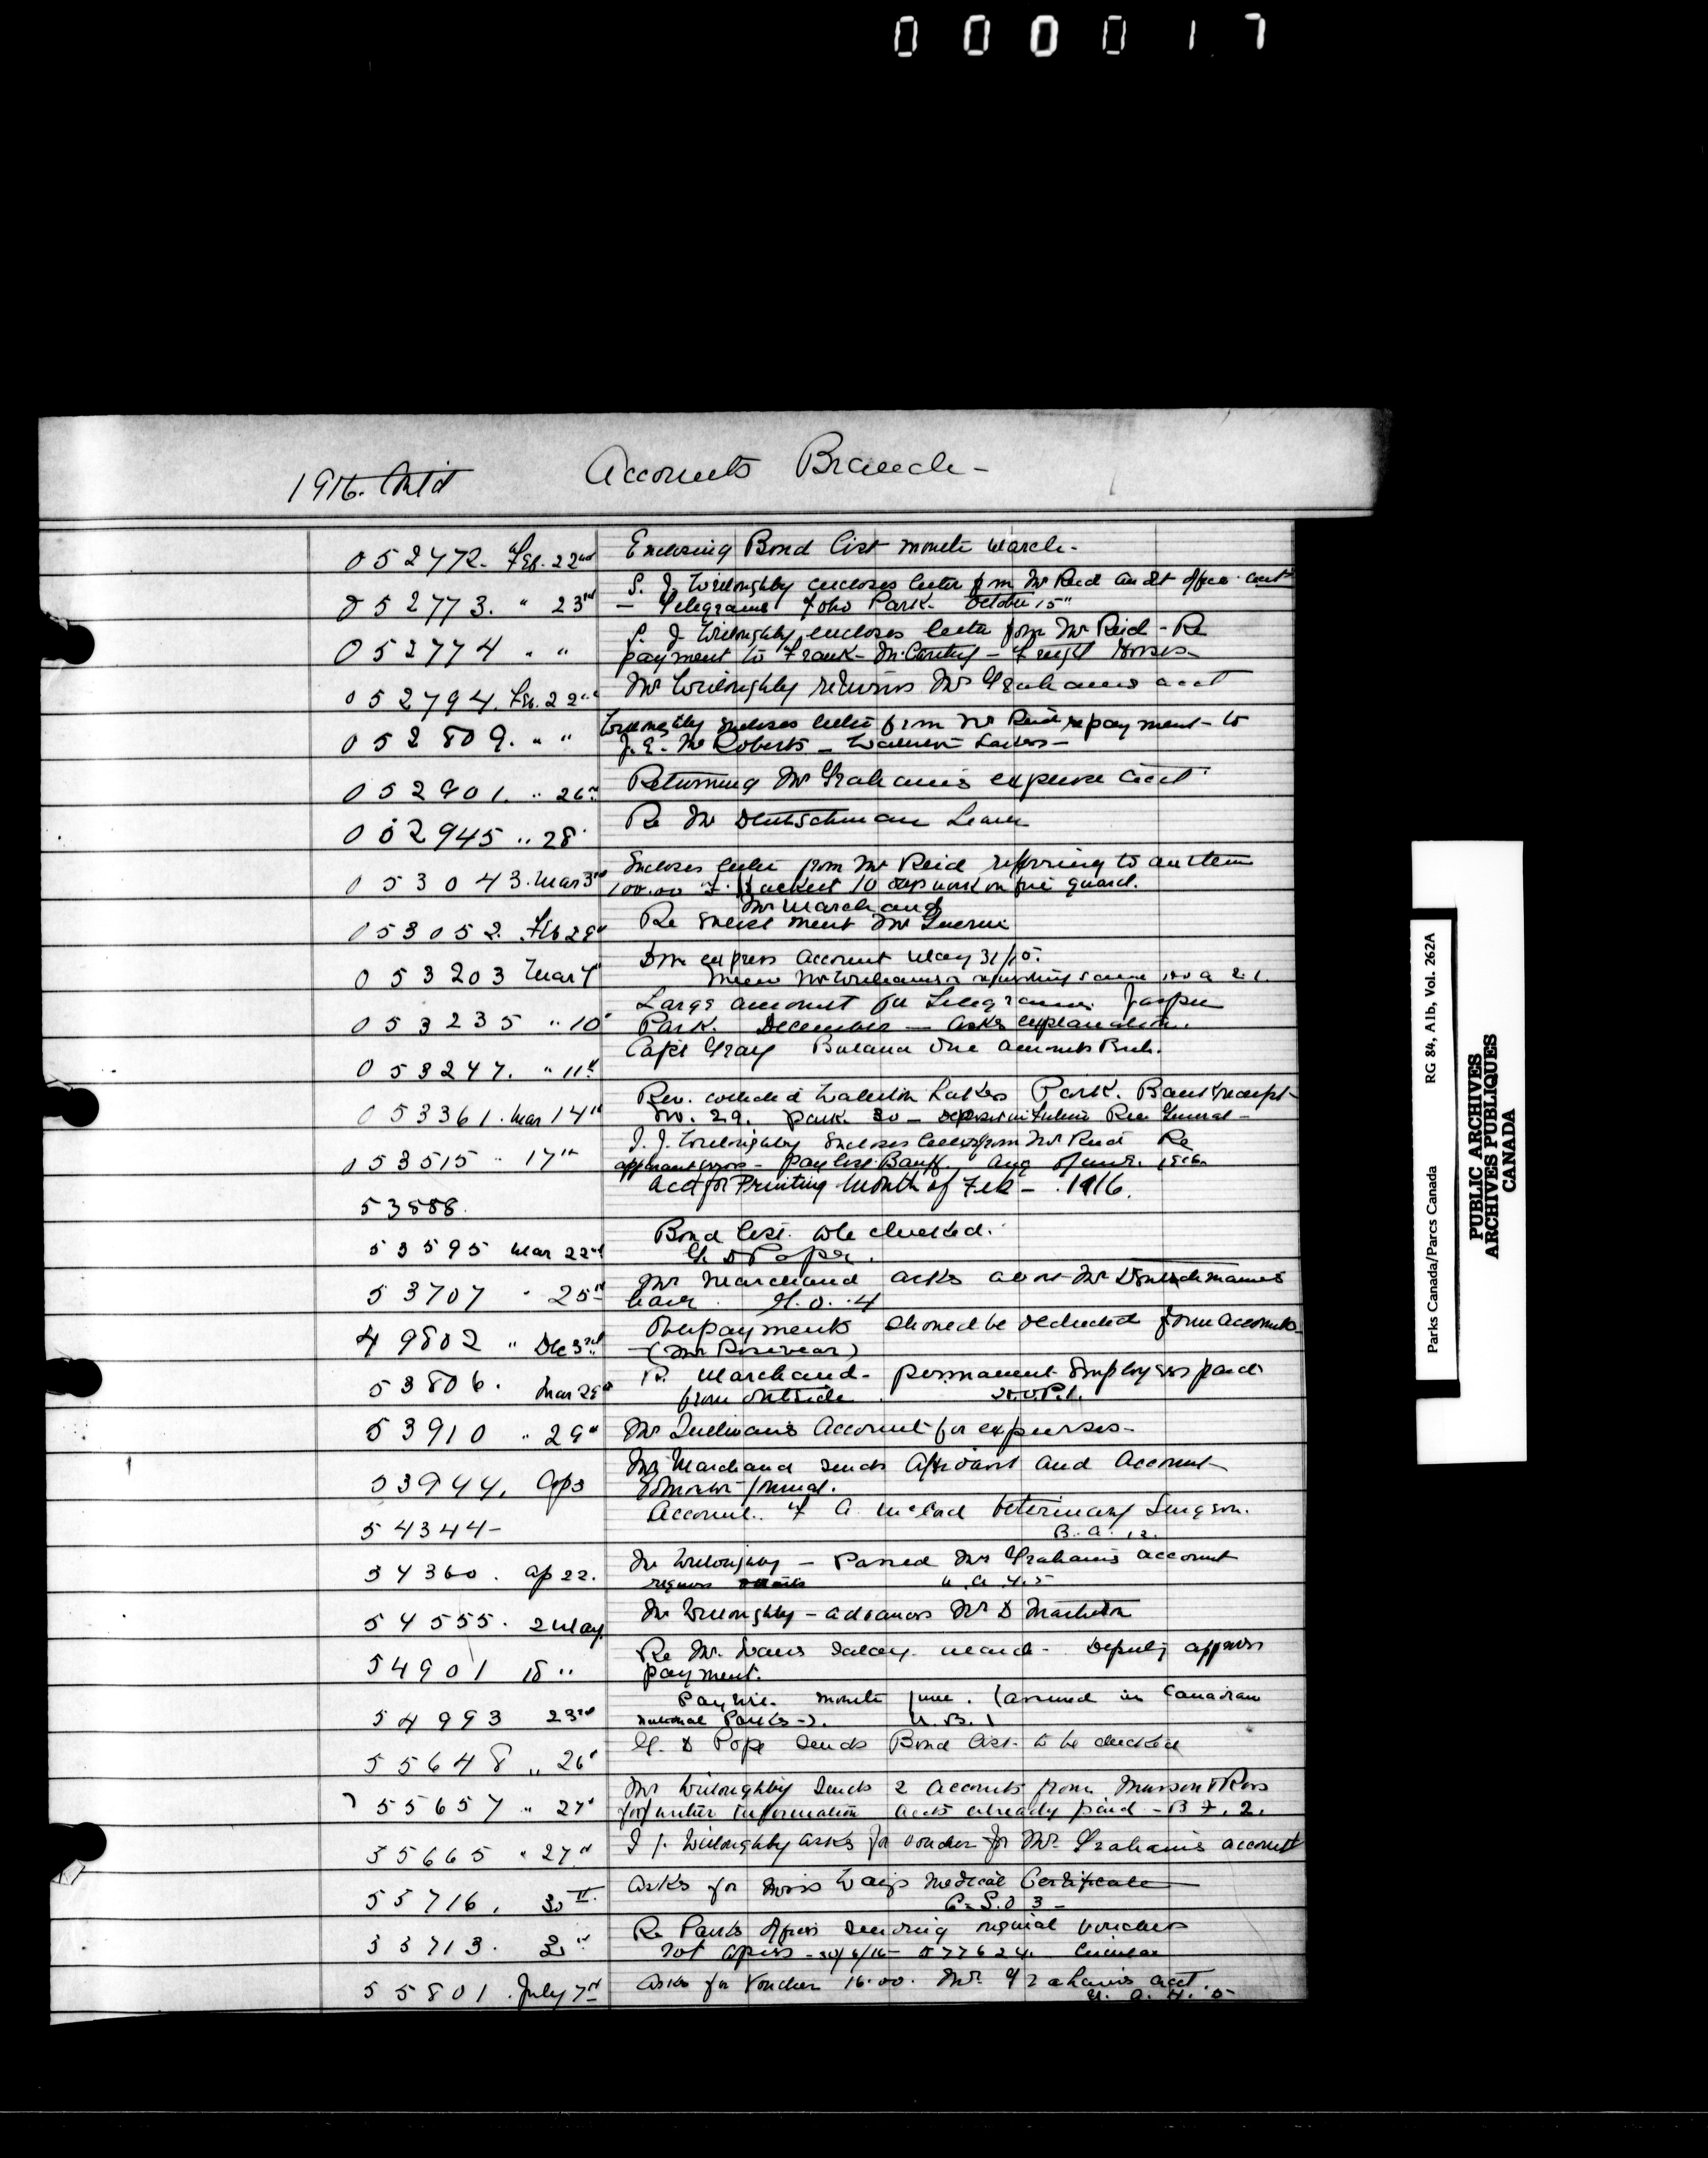 000017
1916. Cont'd Accounts Branch -
052772. Feb. 22nd Enclosing Bond List month March.
052773. " 23rd S. J. Willoughby encloses letter from Mr Reid Audit Office
- Telegrams Yoho Park. October 15"
052774 " " S. J. Willoughby encloses letter from Mr Reid - Re
payment to Frank McCarthy - Freight Horses -
052794. Feb. 22nd Mr Willoughby returns Mr Grahams acct
052809. " " Willoughby encloses letter from Mr Reid re payment to
J. E. Mc Roberts - Waterton Lakes -
052901. " 26th Returning Mr Graham's expense acct
052945 " 28 Re Mr Deutschman Leave
053043. Mar 3rd Encloses letter from Mr Reid referring to an item
100.00 F. 10 days work on fire guard.
Mr Marchand
053052. Feb 29th Re Mr
053203 Mar 7th Dom express Account May 31/15.
Mr Williamson refunding same
Large amount for Telegrams Jasper
053235 " 10 Park. December - Asks explanation.
053247. " 11th Capt Gray Balance Due Accounts Bch.
Rev. collected Waterton Lakes Park. Bank receipt
053361. Mar 14th No. 29. Park 30 - Rec General -
053515 " 17th J. J. Willoughby encloses letter from Mr Reid Re
apparent error - Pay list Banff. Aug
Acct for Printing Month of Feb - 1916.
53558.
Bond List. to be checked.
53595 Mar 22nd G. D Pope.
53707 " 25th Mr Marchand asks about Mr Deutschmans
leave. G. O. 4
Overpayments should be deducted from accounts
49802 " Dec 3rd - (Mr Rosevear)
53806. Mar 28th R. Marchand - Permanent Employees paid
from outside
53910 " 29th Mr Sullivan's Account for expenses -
53944. Ap 3 Mr Marchand sends Affidavit and Account
Edmonton Journal.
54344 - Account of A. McLeod Veterinary Surgeon.
B. A. 12.
54360. Ap 22. Mr Willoughby - Passed Mr Graham's account
U. A. 4. 5
54555. 2 May. Mr Willoughby - advances Mr D Macheton
54901 18 " Re Mr. salary. March - Deputy approves
payment.
Pay list. month June. (assumed in Canadian
54993 23rd National Parks -). U. B. 1
G. D Pope sends Bond List to be checked
55648 " 26th
Mr Willoughby sends 2 Accounts from Musson & Ross
55657 " 27th for further information accts already paid - B F. 2.
55665 " 27th S J. Willoughby asks for voucher for Mr. Graham's account
Asks for Miss Medical Certificate
55716. 30th C. S. O 3 -
Re Parks Offices sending original vouchers
55713. 30th 30/6/16 - Circular
55801. July 7th Asks for Voucher 16.00. Mr. Graham's acct.
U. A. 4. 5
Parks Canada/Parcs Canada RG 84, A1b, Vol. 262A
PUBLIC ARCHIVES
ARCHIVES PUBLIQUES
CANADA